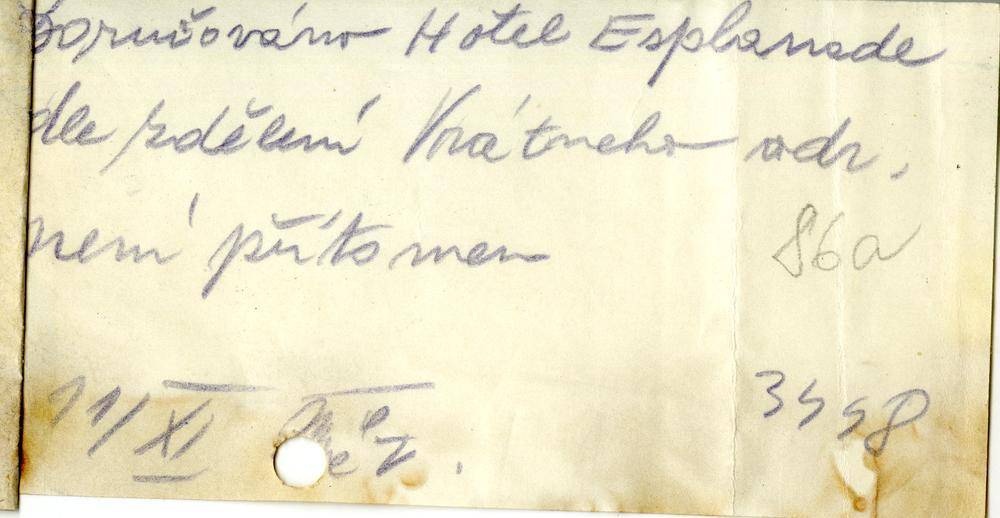 Doručováno Hotel Esplanade
dle sdělení Vrátneho adr.
není přítomen
86a
11/XI
3458